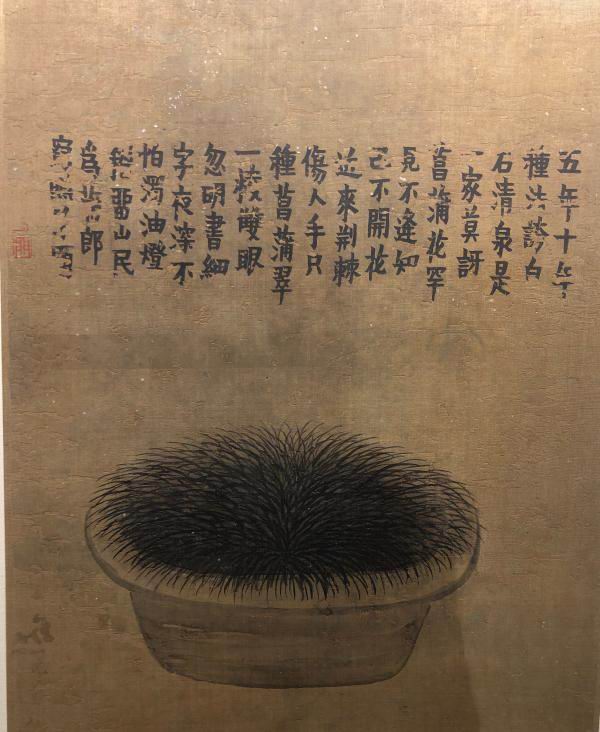 五年十年
種法誇白
石清泉是
一家莫訝
菖蒲花罕
見不逢知
己不開花
近來荆棘
傷人手只
種菖蒲翠
一雙眼
忽明書細
字夜深不
怕濁油燈
稽留山民
為郎